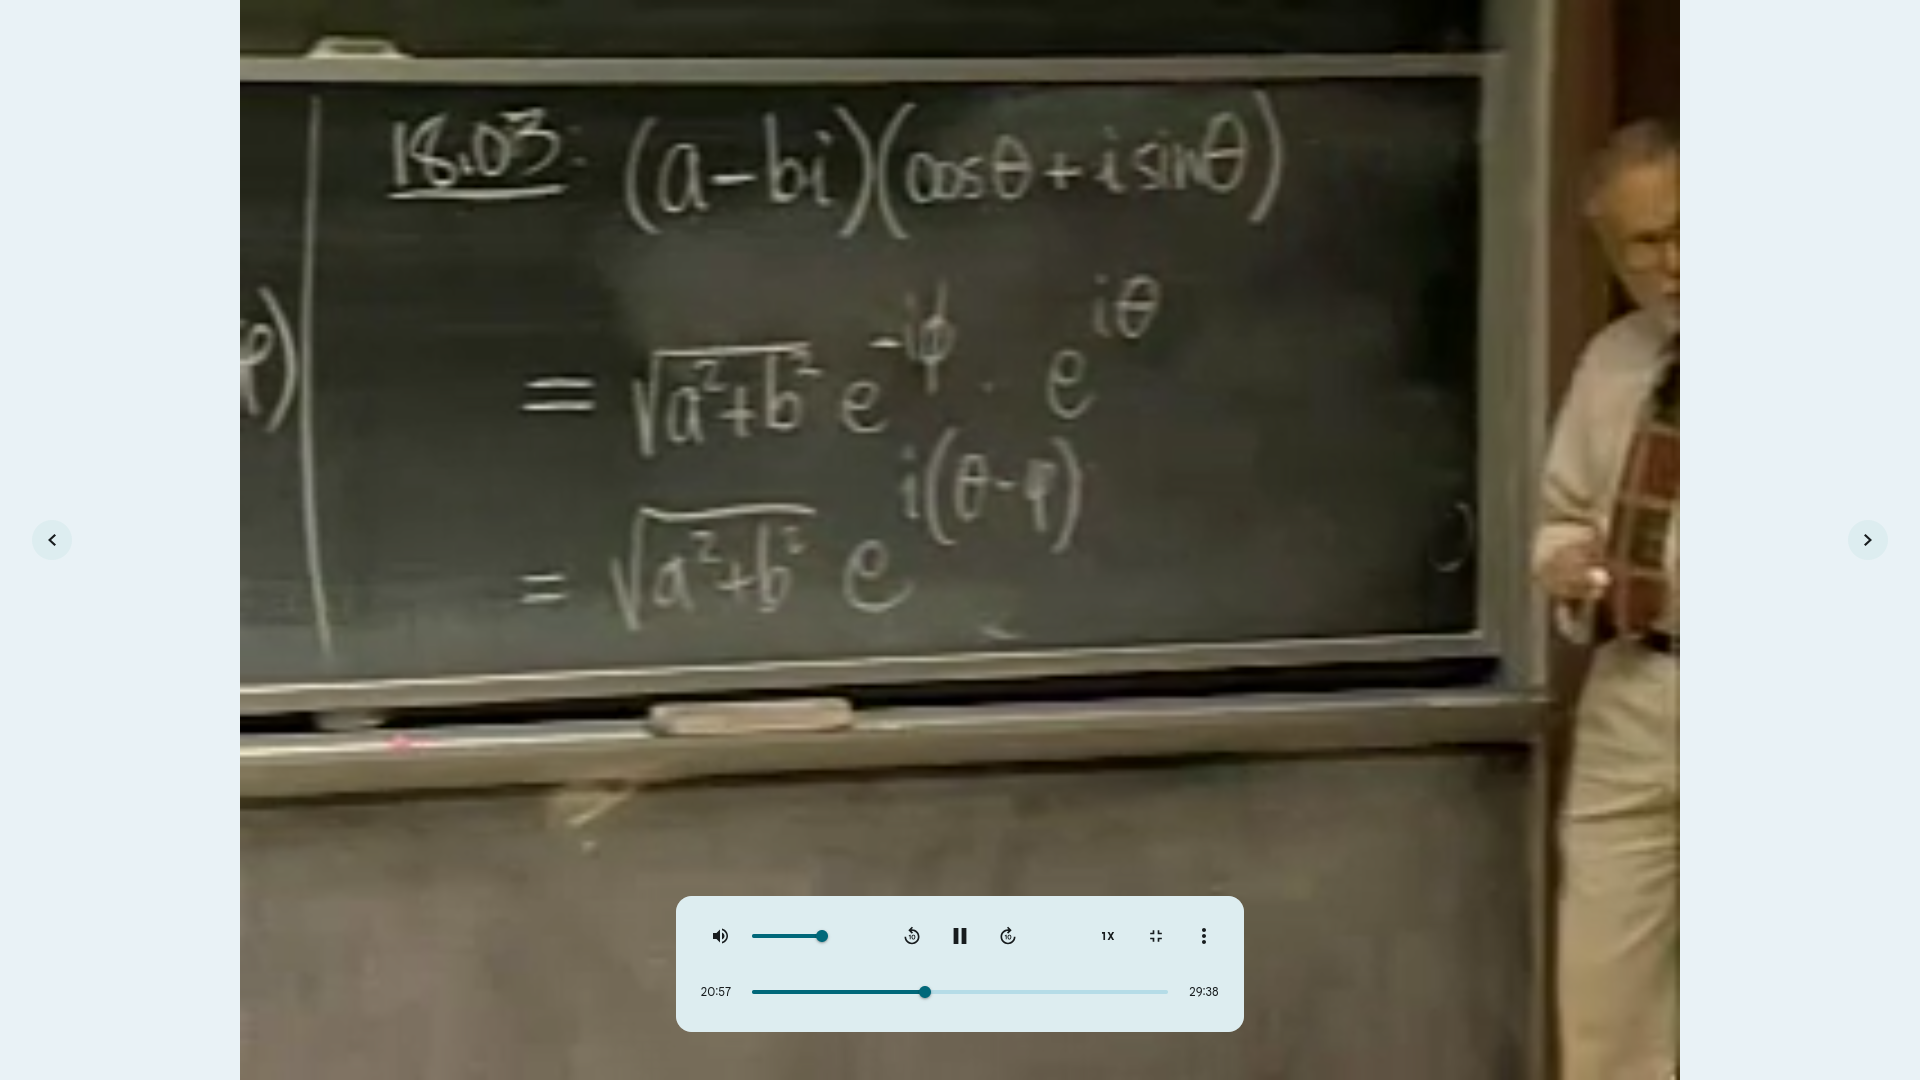 18.03: (a-bi)(cosθ + i sinθ)
= √a²+b² e^-iϕ · e^iθ
φ)
= √a²+b² e^i(θ-φ)
1X
20:57
29:38